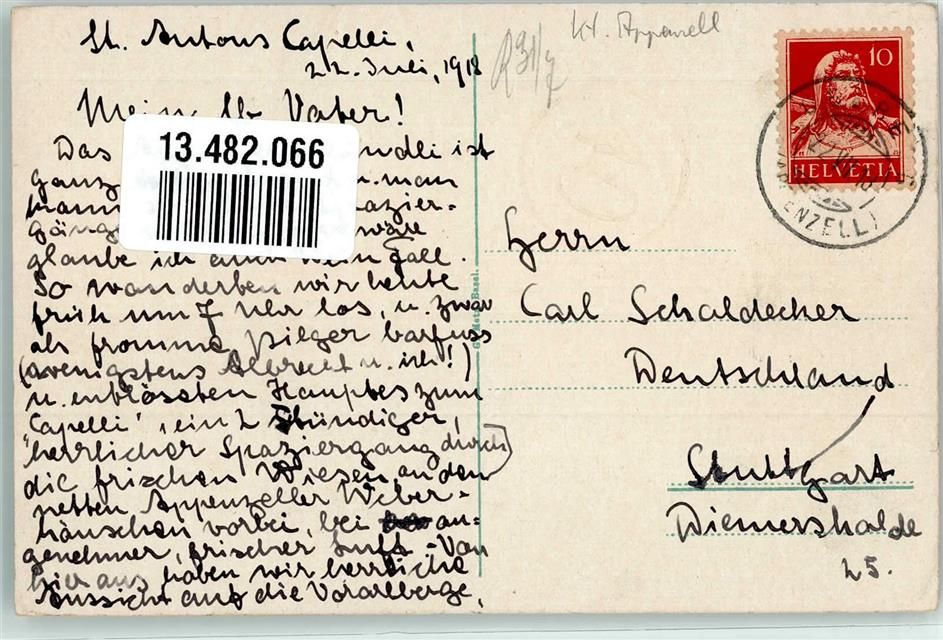 St. Antons Capelli,
22. Juli, 1918
Kt. Appenzell
Mein lb. Vater!
Das ist
ganz u. man
kann
wäre
glaube ich auch kein Fall.
So wanderten wir heute
früh um 7 Uhr los, u. zwar
als fromme Pilger barfuss
(wenigstens Albrecht u. ich!)
u. entblössten Hauptes zum
"Capelli", ein 2 stündiger,
herrlicher Spaziergang durch
die frischen Wiesen an den
netten Appenzeller Weber-
häuschen vorbei, bei an-
genehmer, frischer Luft. Von
hier aus haben wir herrliche
Aussicht auf die Vorarlberge,
13.482.066
10
HELVETIA
Herrn
Carl Schaldecker
Deutschland
Stuttgart
Diemershalde
25.